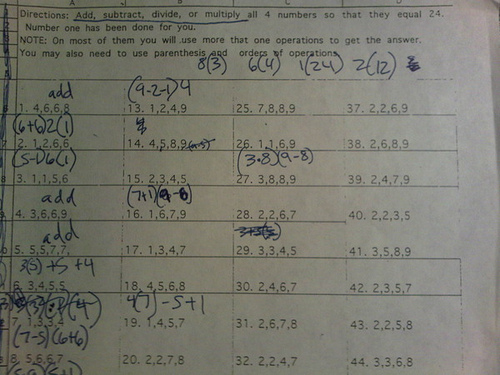 Directions: Add, subtract, divide, or multiply all 4 numbers so that they equal 24.
Number one has been done for you.
NOTE: On most of them you will use more that one operations to get the answer.
You may also need to use parenthesis and orders of operations
8(3) 6(4) 1(24) 2(12)
add (9-2-1)4
1. 4,6,6,8 13. 1,2,4,9 25. 7,8,8,9 37. 2,2,6,9
(6+6)2(1)
2. 1,2,6,6 14. 4,5,8,9 26. 1,1,6,9 38. 2,6,8,9
(5-1)6(1) (3·8)(9-8)
3. 1,1,5,6 15. 2,3,4,5 27. 3,8,8,9 39. 2,4,7,9
add (7+1)(9-6)
4. 3,6,6,9 16. 1,6,7,9 28. 2,2,6,7 40. 2,2,3,5
add
5. 5,5,7,7 17. 1,3,4,7 29. 3,3,4,5 41. 3,5,8,9
3(5)+5+4
6. 3,4,5,5 18. 4,5,6,8 30. 2,4,6,7 42. 2,3,5,7
4(7)-5+1
7. 1,3,3,4 19. 1,4,5,7 31. 2,6,7,8 43. 2,2,5,8
(7-5)(6+6)
8. 5,6,6,7 20. 2,2,7,8 32. 2,2,4,7 44. 3,3,6,8